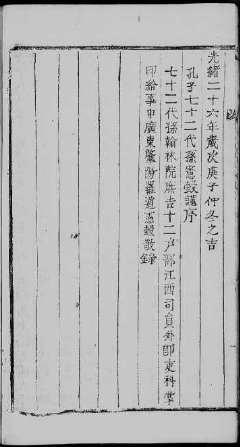 光緒二十六年歲次庚子仲冬之吉
孔子七十二代孫憲瑴謹序
七十二代孫翰林院庶吉士戶部江西司員外郎吏科掌
印給事中廣東肇陽羅道憲瑴敬錄